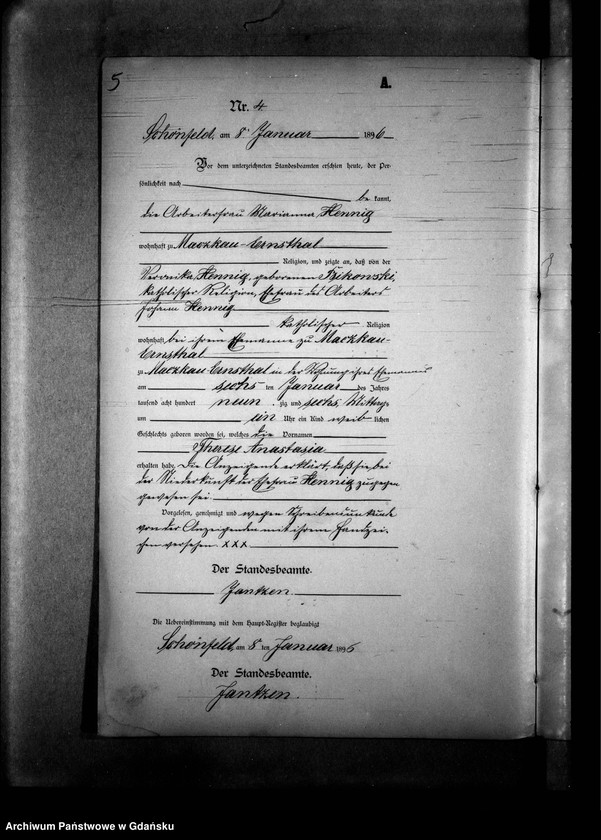 5
A.
Nr. 4
Schönfeld, am 8. Januar 1896
Vor dem unterzeichneten Standesbeamten erschien heute, der Per-
sönlichkeit nach
be kannt,
die Arbeiterfrau Marianna Hennig
wohnhaft zu Maczkau-Ernsthal
Religion, und zeigte an, daß von der
Veronika Hennig, geborenen Trzikowski,
katholischer Religion, Ehefrau des Arbeiters
Johann Hennig
katholischer Religion
wohnhaft bei ihrem Ehemanne zu Maczkau-
Ernsthal
zu Maczkau-Ernsthal in der Wohnung ihres Ehemannes
am sechs ten Januar des Jahres
tausend acht hundert neun zig und sechs, Mittags
um ein Uhr ein Kind weib lichen
Geschlechts geboren worden sei, welches die Vornamen
Therese Anastasia
erhalten habe. Die Anzeigende erklärt, daß sie bei
der Niederkunft der Ehefrau Hennig zugegen
gewesen sei.
Vorgelesen, genehmigt und wegen Schreibensunkunde
von der Anzeigenden mit ihrem Handzei-
chen versehen. XXX
Der Standesbeamte.
Jantzen.
Die Uebereinstimmung mit dem Haupt-Register beglaubigt
Schönfeld, am 8 ten Januar 1896
Der Standesbeamte.
Jantzen.
Archiwum Państwowe w Gdańsku